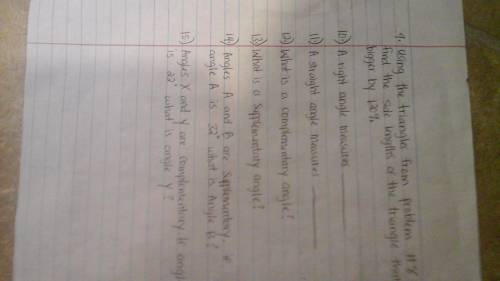 9. Using the triangles from problem #8
find the side lengths of the triangle that
bigger by 120%.
10) A right angle measures
11) A straight angle measures
12) What is a complementary angle?
13) What is a supplementary angle?
14) Angles A and B are supplementary. if
angle A is 32° what is Angle B?
15) Angles X and Y are complementary. If angl
is 22° what is angle y?